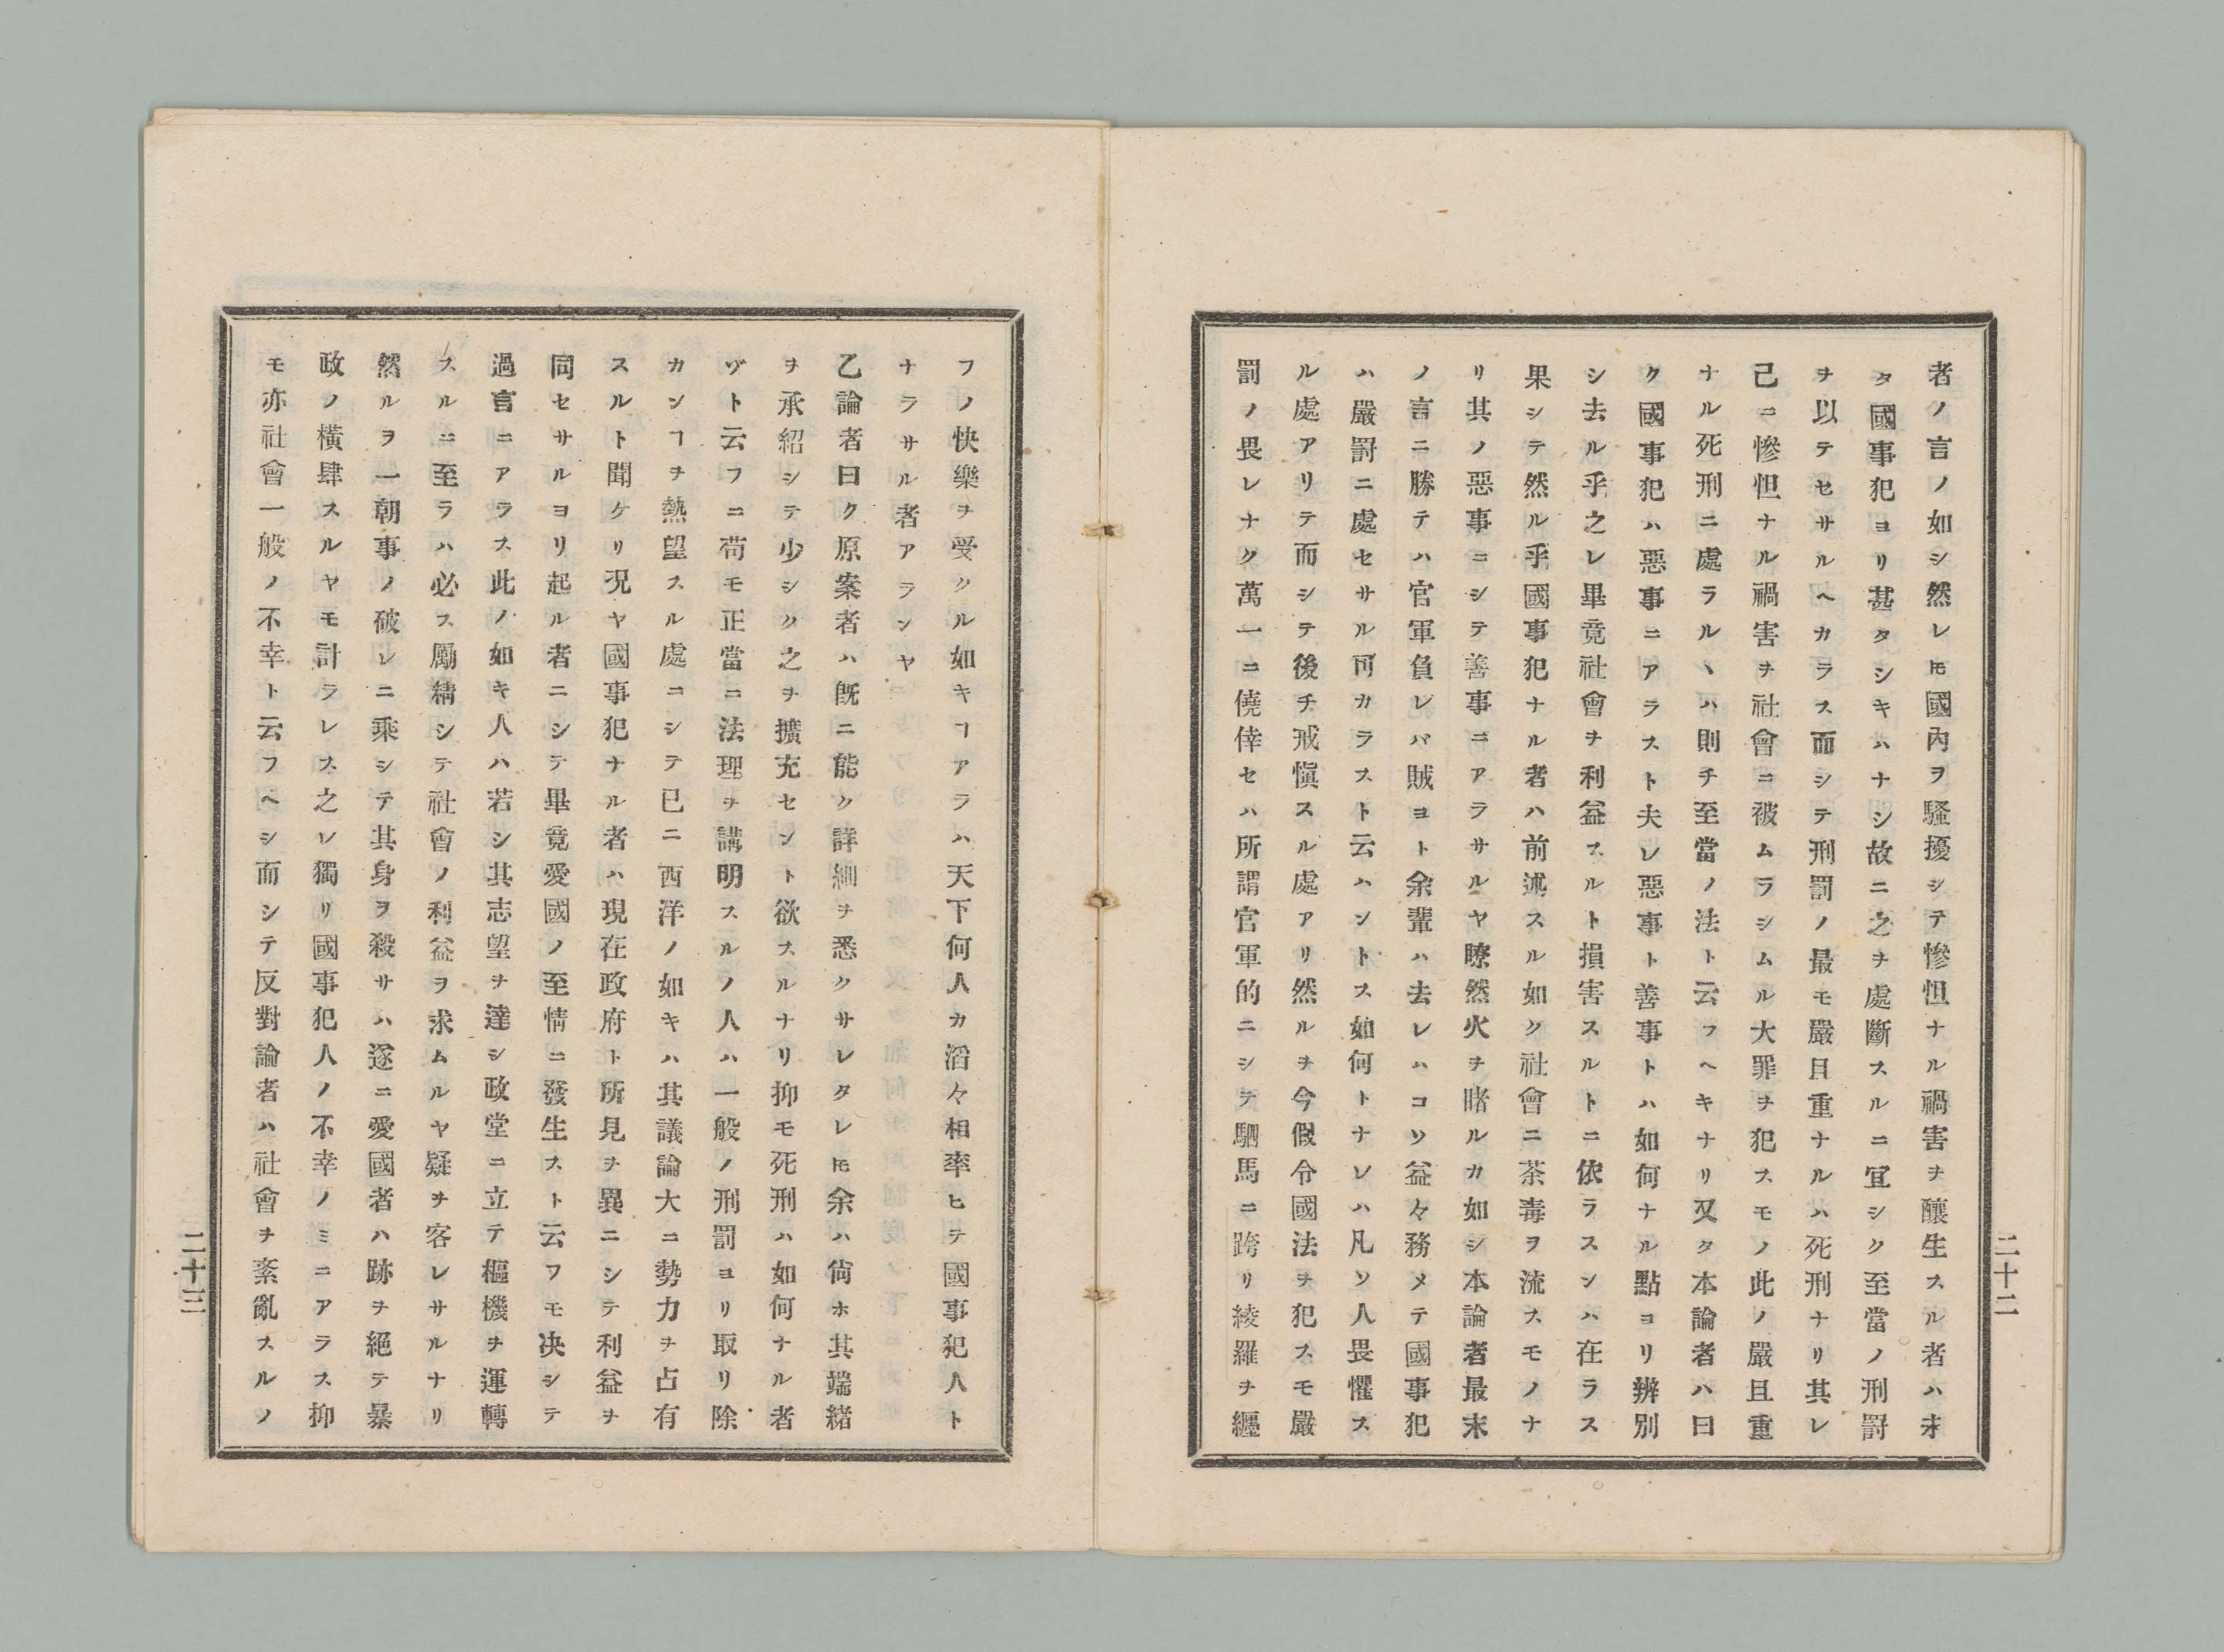 者ノ言ノ如シ然レ𪜈國內ヲ騷擾シテ慘怛ナル禍害ヲ釀生スル者ハ未
タ國事犯ヨリ甚タシキハナシ故ニ之ヲ處斷スルニ宜シク至當ノ刑罰
ヲ以テセサルヘカラス而シテ刑罰ノ最モ嚴且重ナルハ死刑ナリ其レ
己ニ慘怛ナル禍害ヲ社會ニ被ムラシムル大罪ヲ犯スモノ此ノ嚴且重
ナル死刑ニ處ラルヽハ則チ至當ノ法ト云フヘキナリ又タ本論者ハ曰
ク國事犯ハ惡事ニアラスト夫レ惡事ト善事トハ如何ナル點ヨリ辨別
シ去ル乎之レ畢竟社會ヲ利益スルト損害スルトニ依ラスンハ在ラス
果シテ然ル乎國事犯ナル者ハ前述スル如ク社會ニ荼毒ヲ流スモノナ
リ其ノ惡事ニシテ善事ニアラサルヤ瞭然火ヲ睹ルカ如シ本論者最末
ノ言ニ勝テハ官軍負レバ賊ヨト余輩ハ去レハコソ益々務メテ國事犯
ハ嚴罰ニ處セサル可カラスト云ハントス如何トナレハ凡ソ人畏懼ス
ル處アリテ而シテ後チ戒愼スル處アリ然ルヲ今假令國法ヲ犯スモ嚴
罰ノ畏レナク萬一ニ僥倖セハ所謂官軍的ニシテ駟馬ニ跨リ綾羅ヲ纒
二十二
フノ快樂ヲ受クル如キヿアラハ天下何人カ滔々相率ヒテ國事犯人ト
ナラサル者アランヤ
乙論者曰ク原案者ハ既ニ能ク詳細ヲ悉クサレタレ𪜈余ハ尙ホ其端緒
ヲ承紹シテ少シク之ヲ擴充セント欲スルナリ抑モ死刑ハ如何ナル者
ヅト云フニ苟モ正當ニ法理ヲ講明スルノ人ハ一般ノ刑罰ヨリ取リ除
カンヿヲ熱望スル處ニシテ已ニ西洋ノ如キハ其議論大ニ勢力ヲ占有
スルト聞ケリ况ヤ國事犯ナル者ハ現在政府ト所見ヲ異ニシテ利益ヲ
同セサルヨリ起ル者ニシテ畢竟愛國ノ至情ニ發生スト云フモ决シテ
過言ニアラス此ノ如キ人ハ若シ其志望ヲ達シ政堂ニ立テ樞機ヲ運轉
スルニ至ラハ必ス勵精シテ社會ノ利益ヲ求ムルヤ疑ヲ客レサルナリ
然ルヲ一朝事ノ破レニ乘シテ其身ヲ殺サハ遂ニ愛國者ハ跡ヲ絕テ暴
政ノ橫肆スルヤモ計ラレス之レ獨リ國事犯人ノ不幸ノミニアラス抑
モ亦社會一般ノ不幸ト云フヘシ而シテ反對論者ハ社會ヲ紊亂スルノ
二十三